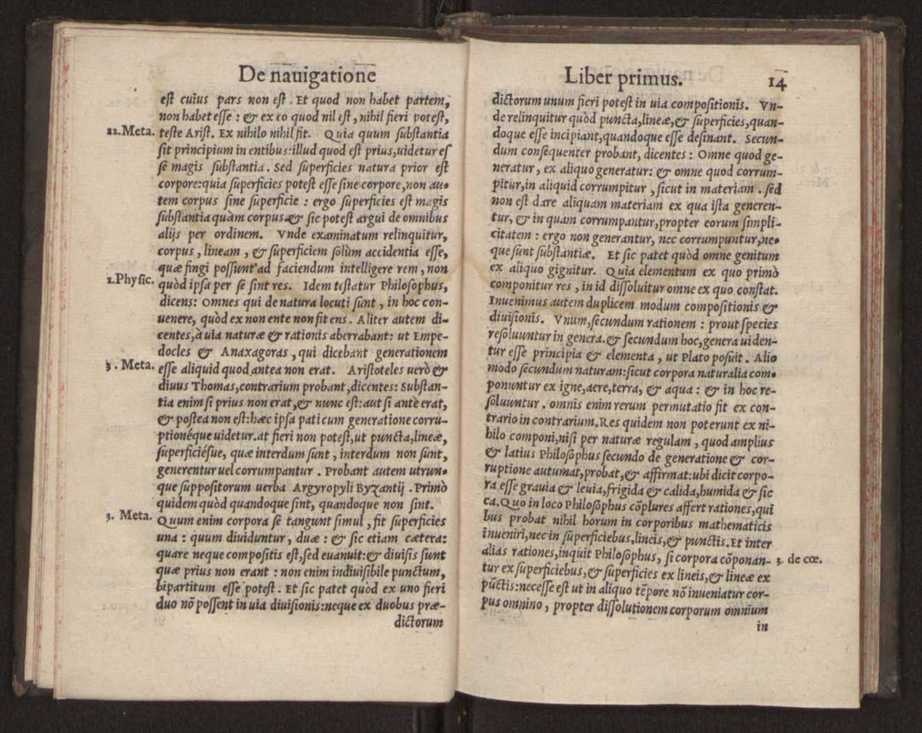 De nauigatione
est cuius pars non est. Et quod non habet partem,
non habet esse: & ex eo quod nil est, nihil fieri potest,
22. Meta. teste Arist. Ex nihilo nihil fit. Quia quum substantia
sit principium in entibus: illud quod est prius, uidetur es
se magis substantia. Sed superficies natura prior est
corpore: quia superficies potest esse sine corpore, non au-
tem corpus sine superficie: ergo superficies est magis
substantia quàm corpus & sic potest argui de omnibus
alijs per ordinem. Vnde examinatum relinquitur,
corpus, lineam, & superficiem solùm accidentia esse,
quæ fingi possunt ad faciendum intelligere rem, non
1. Physic. quòd ipsa per se sint res. Idem testatur Philosophus,
dicens: Omnes qui de natura locuti sunt, in hoc con-
uenere, quòd ex non ente non fit ens. Aliter autem di-
centes, à uia naturæ & rationis aberrabant: ut Empe-
docles & Anaxagoras, qui dicebant generationem
3. Meta. esse aliquid quod antea non erat. Aristoteles uerò &
diuus Thomas, contrarium probant, dicentes: Substan-
tia enim si prius non erat, & nunc est: aut si antè erat,
& postea non est: hæc ipsa pati cum generatione corru-
ptionéque uidetur. at fieri non potest, ut puncta, lineæ,
superficiésue, quæ interdum sunt, interdum non sunt,
generentur uel corrumpantur. Probant autem utrun-
que suppositorum uerba Argyropyli Byzantij. Primò
quidem quòd quandoque sint, quandoque non sint.
3. Meta. Quum enim corpora se tangunt simul, fit superficies
una: quum diuiduntur, duæ: & sic etiam cætera:
quare neque compositis est, sed euanuit: & diuisis sunt
quæ prius non erant: non enim indiuisibile punctum,
bipartitum esse potest. Et sic patet quòd ex uno fieri
duo nō possent in uia diuisionis: neque ex duobus præ-
dictorum
Liber primus. 14
dictorum unum fieri potest in uia compositionis. Vn-
de relinquitur quòd puncta, lineæ, & superficies, quan-
doque esse incipiant, quandoque esse desinant. Secun-
dum consequenter probant, dicentes: Omne quod ge-
neratur, ex aliquo generatur: & omne quod corrum-
pitur, in aliquid corrumpitur, sicut in materiam. sed
non est dare aliquam materiam ex qua ista generen-
tur, & in quam corrumpantur, propter eorum simpli-
citatem: ergo non generantur, nec corrumpuntur, ne-
que sunt substantiæ. Et sic patet quòd omne genitum
ex aliquo gignitur. Quia elementum ex quo primò
componitur res, in id dissoluitur omne ex quo constat.
Inuenimus autem duplicem modum compositionis &
diuisionis. Vnum, secundum rationem: prout species
resoluuntur in genera. & secundum hoc, genera uiden-
tur esse principia & elementa, ut Plato posuit. Alio
modo secundum naturam: sicut corpora naturalia com-
ponuntur ex igne, aere, terra, & aqua: & in hoc re-
soluuntur. omnis enim rerum permutatio fit ex con-
trario in contrarium. Res quidem non poterunt ex ni-
hilo componi, nisi per naturæ regulam, quod amplius
& latius Philosophus secundo de generatione & cor-
ruptione autumat, probat, & affirmat: ubi dicit corpo-
ra esse grauia & leuia, frigida & calida, humida & sic
ca. Quo in loco Philosophus cōplures affert rationes, qui
bus probat nihil horum in corporibus mathematicis
inueniri, nec in superficiebus, lineis, & punctis. Et inter
alias rationes, inquit Philosophus, si corpora cōponan- 3. de cœ.
tur ex superficiebus, & superficies ex lineis, & lineæ ex
pūctis: necesse est ut in aliquo tēpore nō inueniatur cor-
pus omnino, propter dissolutionem corporum omnium
in